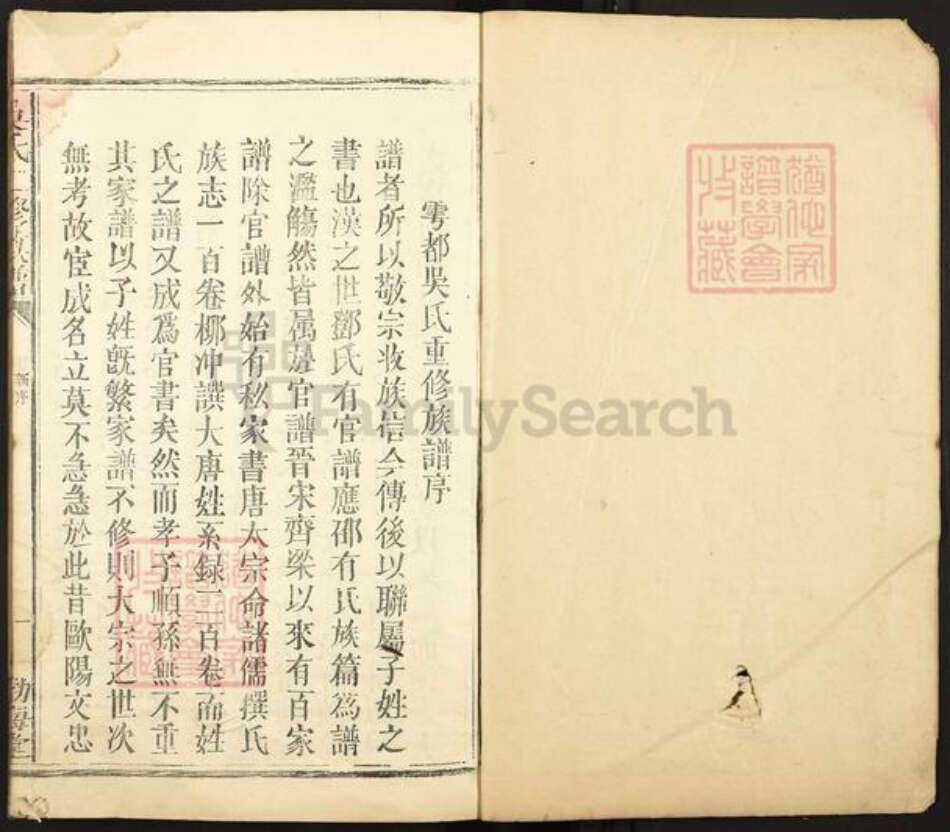 猶他家
譜學會
收藏
雩都吳氏重修族譜序
譜者所以敬宗收族信今傳後以聯屬子姓之
書也漢之世鄧氏有官譜應邵有氏族篇為譜
之濫觴然皆属於官譜晉宋齊梁以來有百家
譜除官譜外始有私家書唐太宗命諸儒撰氏
族志一百卷柳冲譔大唐姓系録二百卷而姓
氏之譜又成爲官書矣然而孝子順孫無不重
其家譜以子姓既繁家譜不修則大宗之世次
無考故宦成名立莫不急急於此昔歐陽文忠
吳氏 修族譜
新序
一
勃海堂
猶他家
譜學會
收藏
FamilySearch